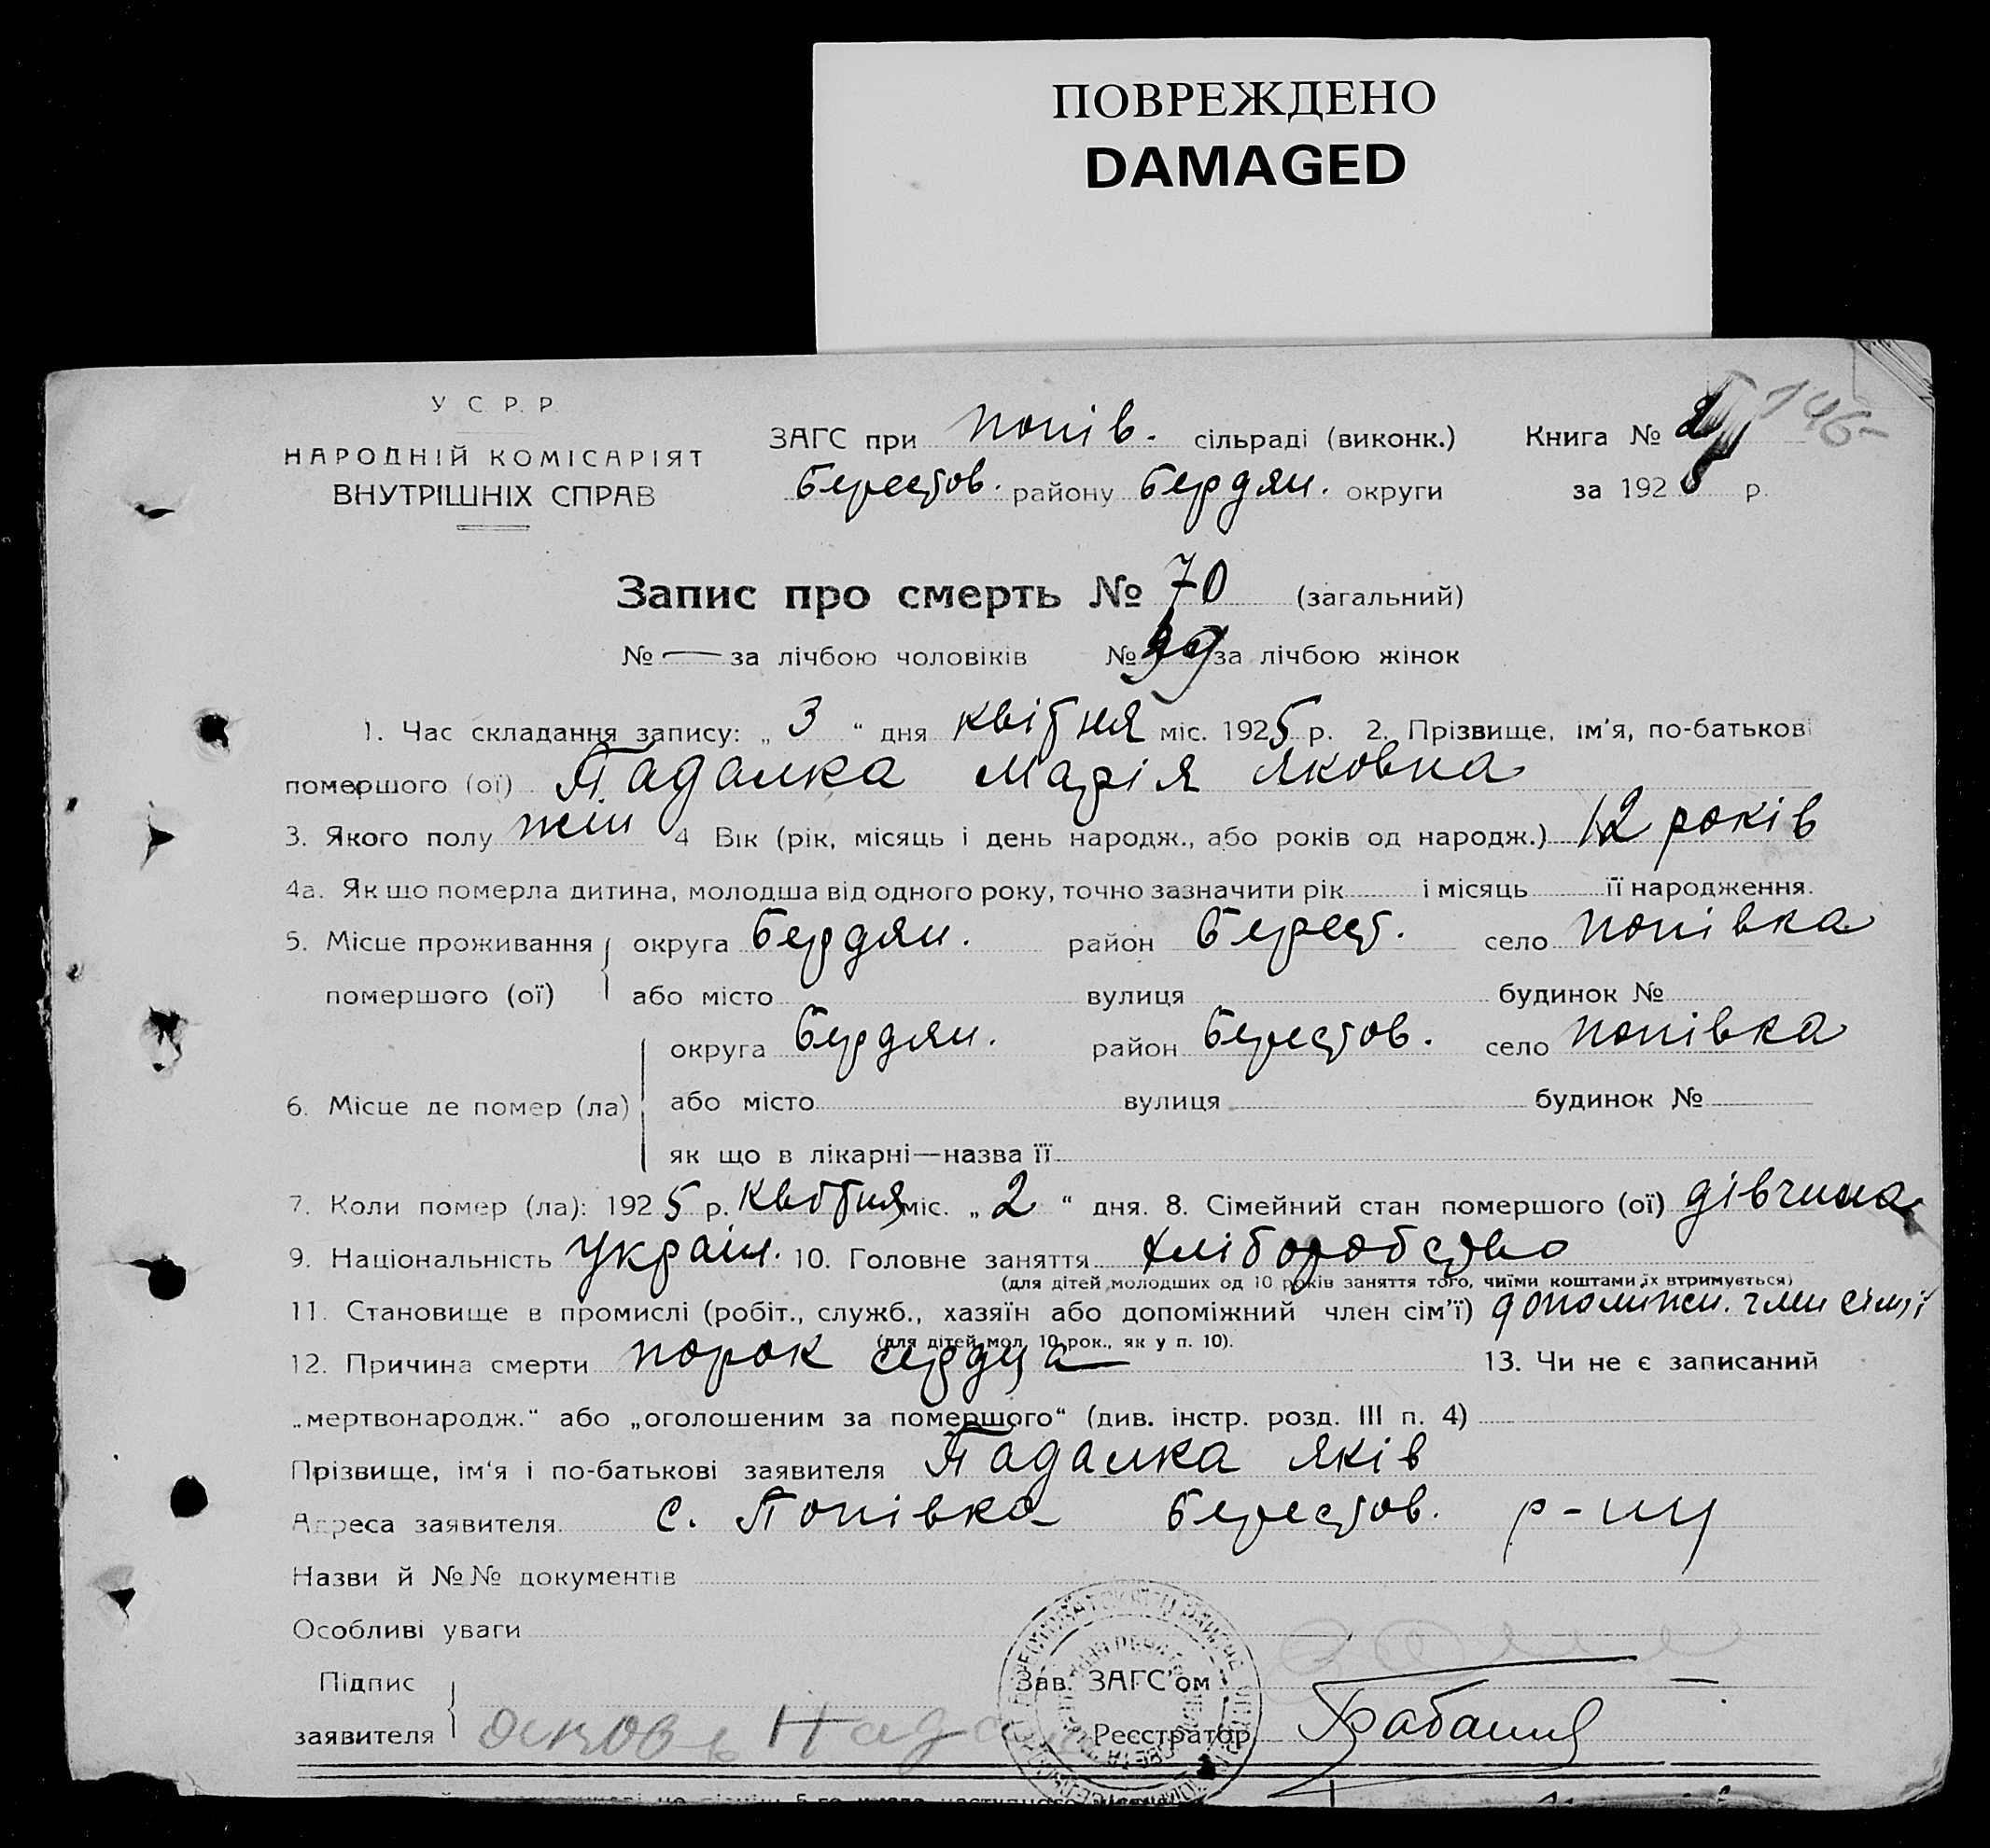 ПОВРЕЖДЕНО
DAMAGED
У С. Р. Р.
НАРОДНІЙ КОМІСАРІЯТ
ВНУТРІШНІХ СПРАВ
ЗАГС при Попів. сільраді (виконк.)
Берестов. району Бердян. округи
Книга №
146
за 192 р.
Запис про смерть № 70 (загальний)
№ — за лічбою чоловіків № за лічбою жінок
1. Час складання запису: „ 3 “ дня квітня міс. 1925 р. 2. Прізвище, ім'я, по-батькові
помершого (ої) Падалка Марія Яковна
3. Якого полу жін 4 Вік (рік, місяць і день народж., або років од народж.) 12 років
4а. Як що померла дитина, молодша від одного року, точно зазначити рік і місяць її народження.
5. Місце проживання округа Бердян. район Берест. село Попівка
помершого (ої) або місто вулиця будинок №
округа Бердян. район Берестов. село Попівка
6. Місце де помер (ла) або місто вулиця будинок №
як що в лікарні—назва її
7. Коли помер (ла): 1925 р. Квітня міс. „ 2 “ дня. 8. Сімейний стан помершого (ої) дівчина
9. Національність Україн. 10. Головне заняття хліборобство
(для дітей молодших од 10 років заняття того, чиїми коштами їх втримується)
11. Становище в промислі (робіт., служб., хазяїн або допоміжний член сім'ї) допоміжн. член сім'ї
(для дітей мол. 10 рок., як у п. 10).
12. Причина смерти порок сердца 13. Чи не є записаний
„мертвонародж.“ або „оголошеним за помершого“ (див. інстр. розд. III п. 4)
Прізвище, ім'я і по-батькові заявителя Падалка Яків
Адреса заявителя с. Попівка Берестов. р-ну
Назви й №№ документів
Особливі уваги
Підпис
заявителя
Зав. ЗАГС'ом
Реєстратор